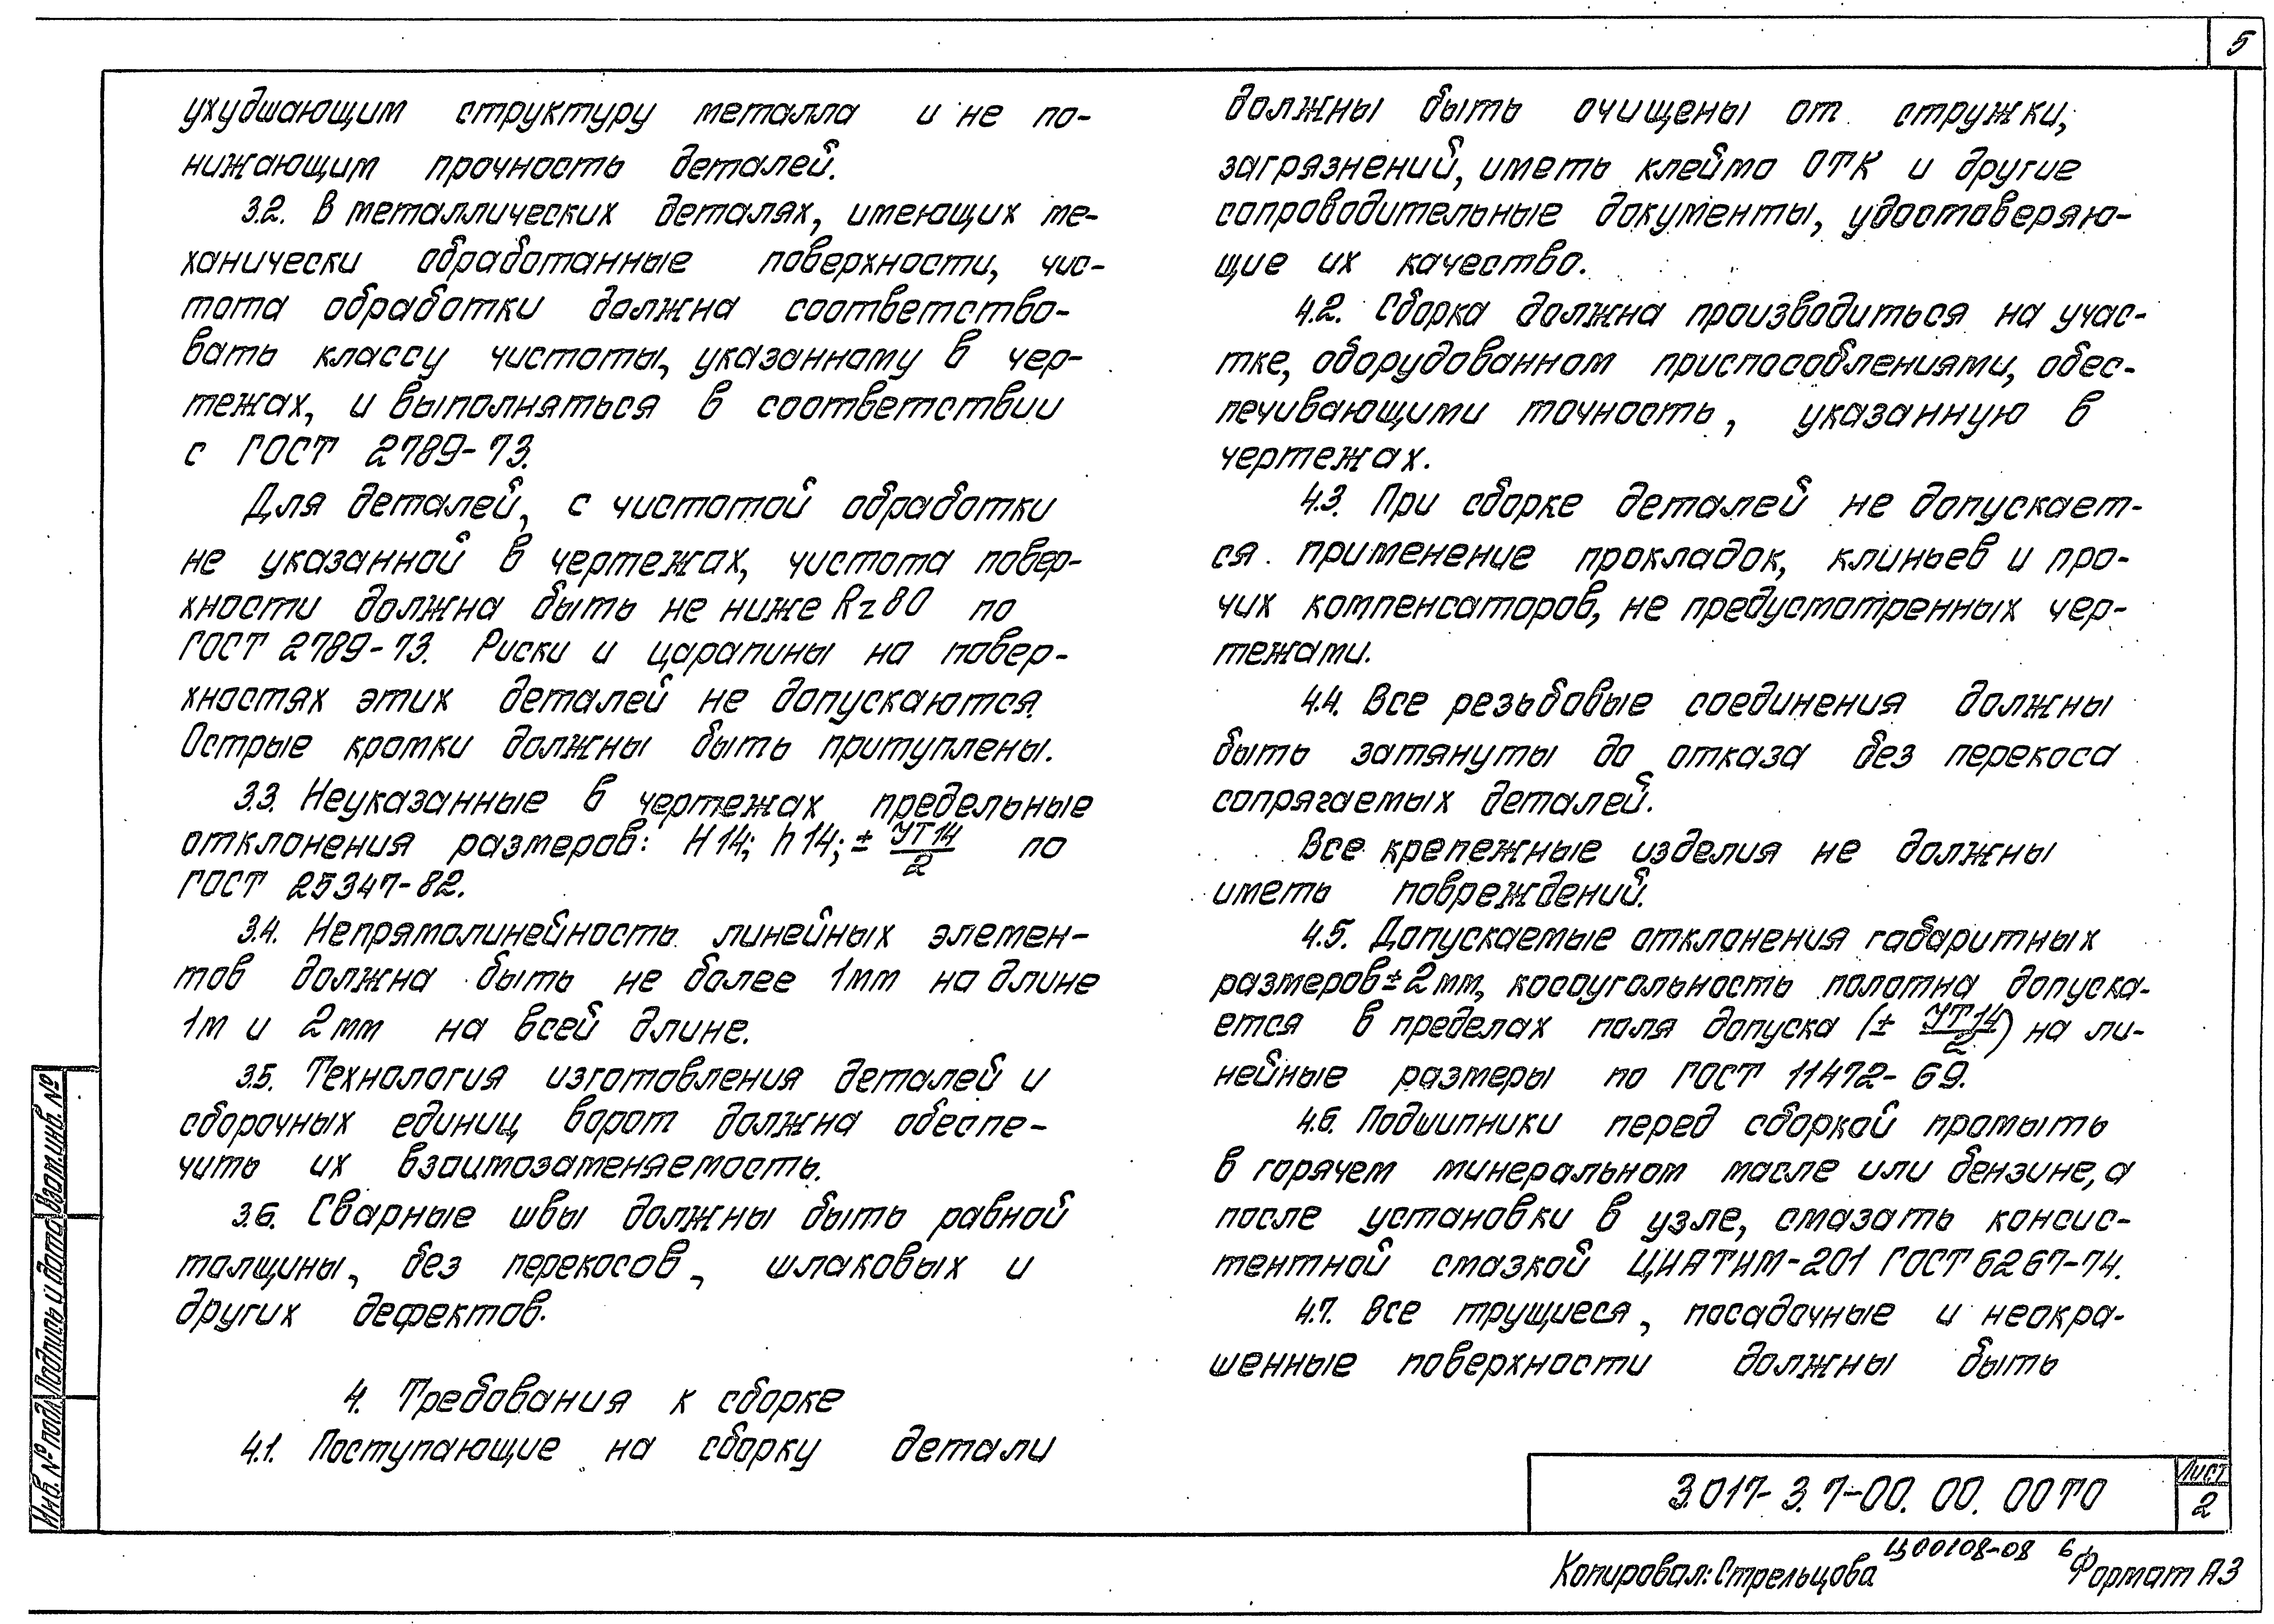 5
ухудшающим структуру металла и не по-
нижающим прочность деталей.
3.2. В металлических деталях, имеющих ме-
ханически обработанные поверхности, чис-
тота обработки должна соответство-
вать классу чистоты, указанному в чер-
тежах, и выполняться в соответствии
с ГОСТ 2789-73.
Для деталей, с чистотой обработки
не указанной в чертежах, чистота повер-
хности должна быть не ниже Rz80 по
ГОСТ 2789-73. Риски и царапины на повер-
хностях этих деталей не допускаются.
Острые кромки должны быть притуплены.
3.3. Неуказанные в чертежах предельные
отклонения размеров: H14; h14; ± УТ14/2 по
ГОСТ 25347-82.
3.4. Непрямолинейность линейных элемен-
тов должна быть не более 1мм на длине
1м и 2мм на всей длине.
3.5. Технология изготовления деталей и
сборочных единиц ворот должна обеспе-
чить их взаимозаменяемость.
3.6. Сварные швы должны быть равной
толщины, без перекосов, шлаковых и
других дефектов.
4. Требования к сборке
4.1. Поступающие на сборку детали
должны быть очищены от стружки,
загрязнений, иметь клеймо ОТК и другие
сопроводительные документы, удостоверяю-
щие их качество.
4.2. Сборка должна производиться на учас-
тке, оборудованном приспособлениями, обес-
печивающими точность, указанную в
чертежах.
4.3. При сборке деталей не допускает-
ся применение прокладок, клиньев и про-
чих компенсаторов, не предусмотренных чер-
тежами.
4.4. Все резьбовые соединения должны
быть затянуты до отказа без перекоса
сопрягаемых деталей.
Все крепежные изделия не должны
иметь повреждений.
4.5. Допускаемые отклонения габаритных
размеров ± 2мм, косоугольность полотна допуска-
ется в пределах поля допуска (± УТ14/2) на ли-
нейные размеры по ГОСТ 11472-69.
4.6. Подшипники перед сборкой промыть
в горячем минеральном масле или бензине, а
после установки в узле, смазать консис-
тентной смазкой ЦИАТИМ-201 ГОСТ 6267-74.
4.7. Все трущиеся, посадочные и неокра-
шенные поверхности должны быть
Инв. № подл. Подпись и дата Взам.инв. №
3.017-3.7-00.00.00ТО
Лист
2
Копировал: Стрельцова Ц00108-08 6 Формат А3